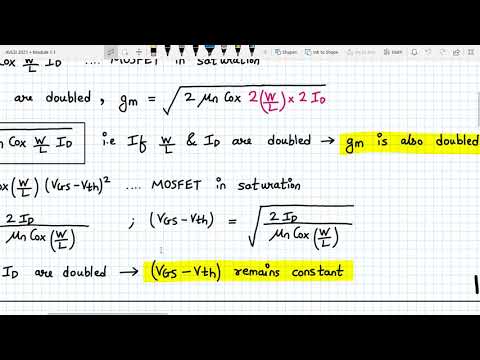 AVLSI 2021 • Module 1.1
Shapes Ink to Shape
Cox W/L ID .... MOSFET in saturation
are doubled, gm = √(2 μn Cox 2(W/L) × 2 ID)
n Cox W/L ID i.e If W/L & ID are doubled → gm is also doubled
ox (W/L) (VGS - Vth)² .... MOSFET in saturation
2 ID / μn Cox (W/L) ; (VGS - Vth) = √(2 ID / μn Cox (W/L))
ID are doubled → (VGS - Vth) remains constant